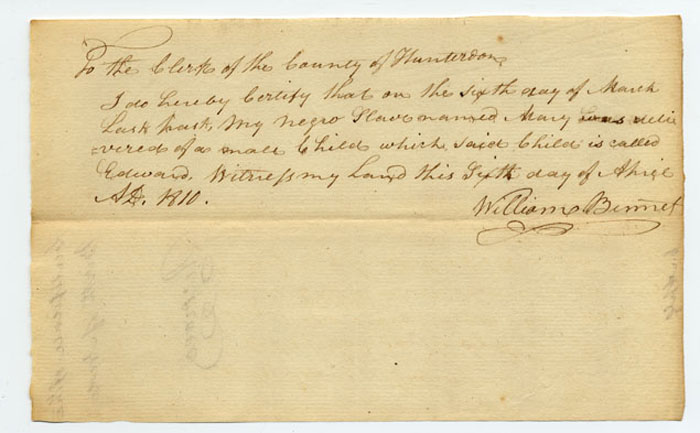 To the Clerk of the County of Hunterdon,
I do hereby Certify that on the sixth day of March
Last past, My negro Slave named Mary was deliv
=vered of a male Child which said Child is called
Edward. Witness my hand this Sixth day of April
AD. 1810.
William Bennet